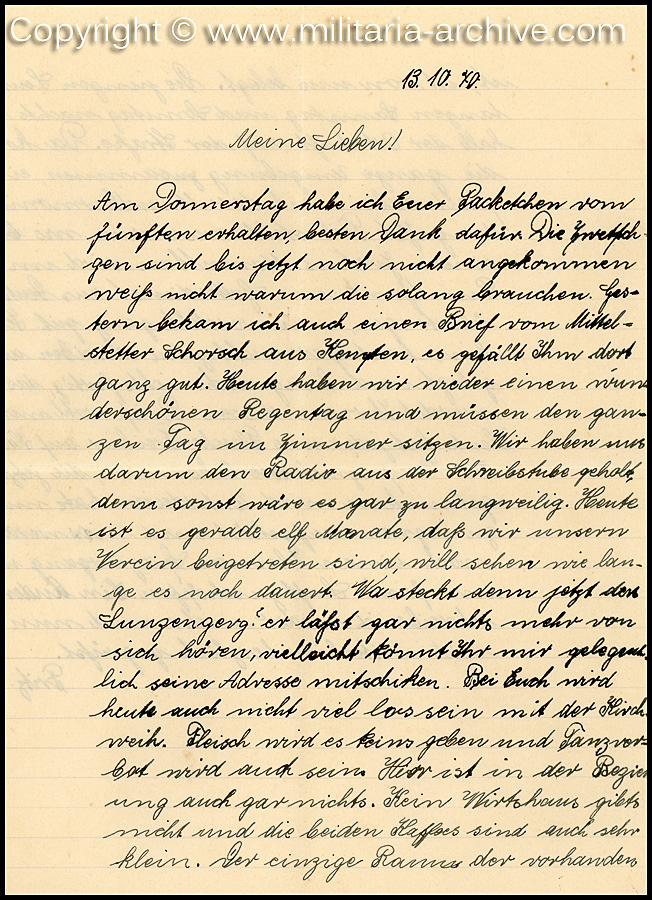 Copyright © www.militaria-archive.com
13.10.40.
Meine Lieben!
Am Donnerstag habe ich Euer Packetchen vom
fünften erhalten, besten Dank dafür. Die Zwetsch-
gen sind bis jetzt noch nicht angekommen
weiß nicht warum die solang brauchen. Ges-
tern bekam ich auch einen Brief vom Mittel-
stetter Schorsch aus Kempten, es gefällt Ihm dort
ganz gut. Heute haben wir wieder einen wun
derschönen Regentag und müssen den gan-
zen Tag im Zimmer sitzen. Wir haben uns
darum den Radio aus der Schreibstube geholt,
denn sonst wäre es gar zu langweilig. Heute
ist es gerade elf Monate, daß wir unsern
Verein beigetreten sind, will sehen wie lan-
ge es noch dauert. Wo steckt denn jetzt der
er läßt gar nichts mehr von
sich hören, vielleicht könnt Ihr mir gelegent
lich seine Adresse mitschiken. Bei Euch wird
heute auch nicht viel los sein mit der Kirch
weih. Fleisch wird es keins geben und Tanzver-
bot wird auch sein. Hier ist in der Bezieh
ung auch gar nichts. Kein Wirtshaus gibts
nicht und die beiden Kaffees sind auch sehr
klein. Der einzige Raum der vorhanden